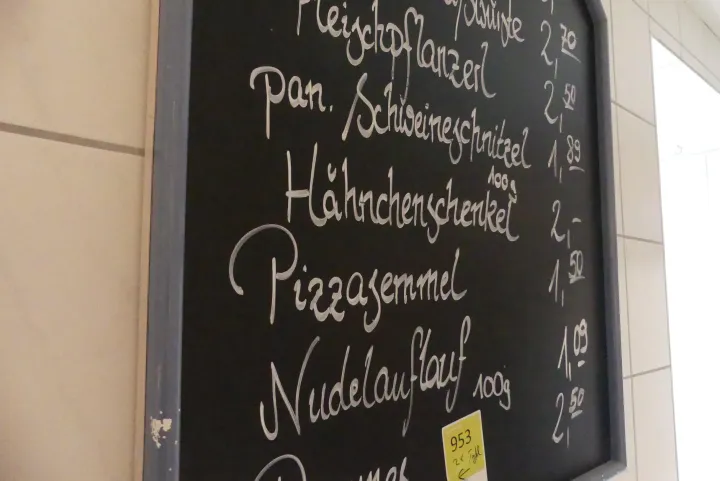 2,70
Fleischpflanzerl 2,50
Pan. Schweineschnitzel 1,89
100g
Hähnchenschenkel 2,-
Pizzasemmel 1,50
Nudelauflauf 100g 1,09
2,50
953